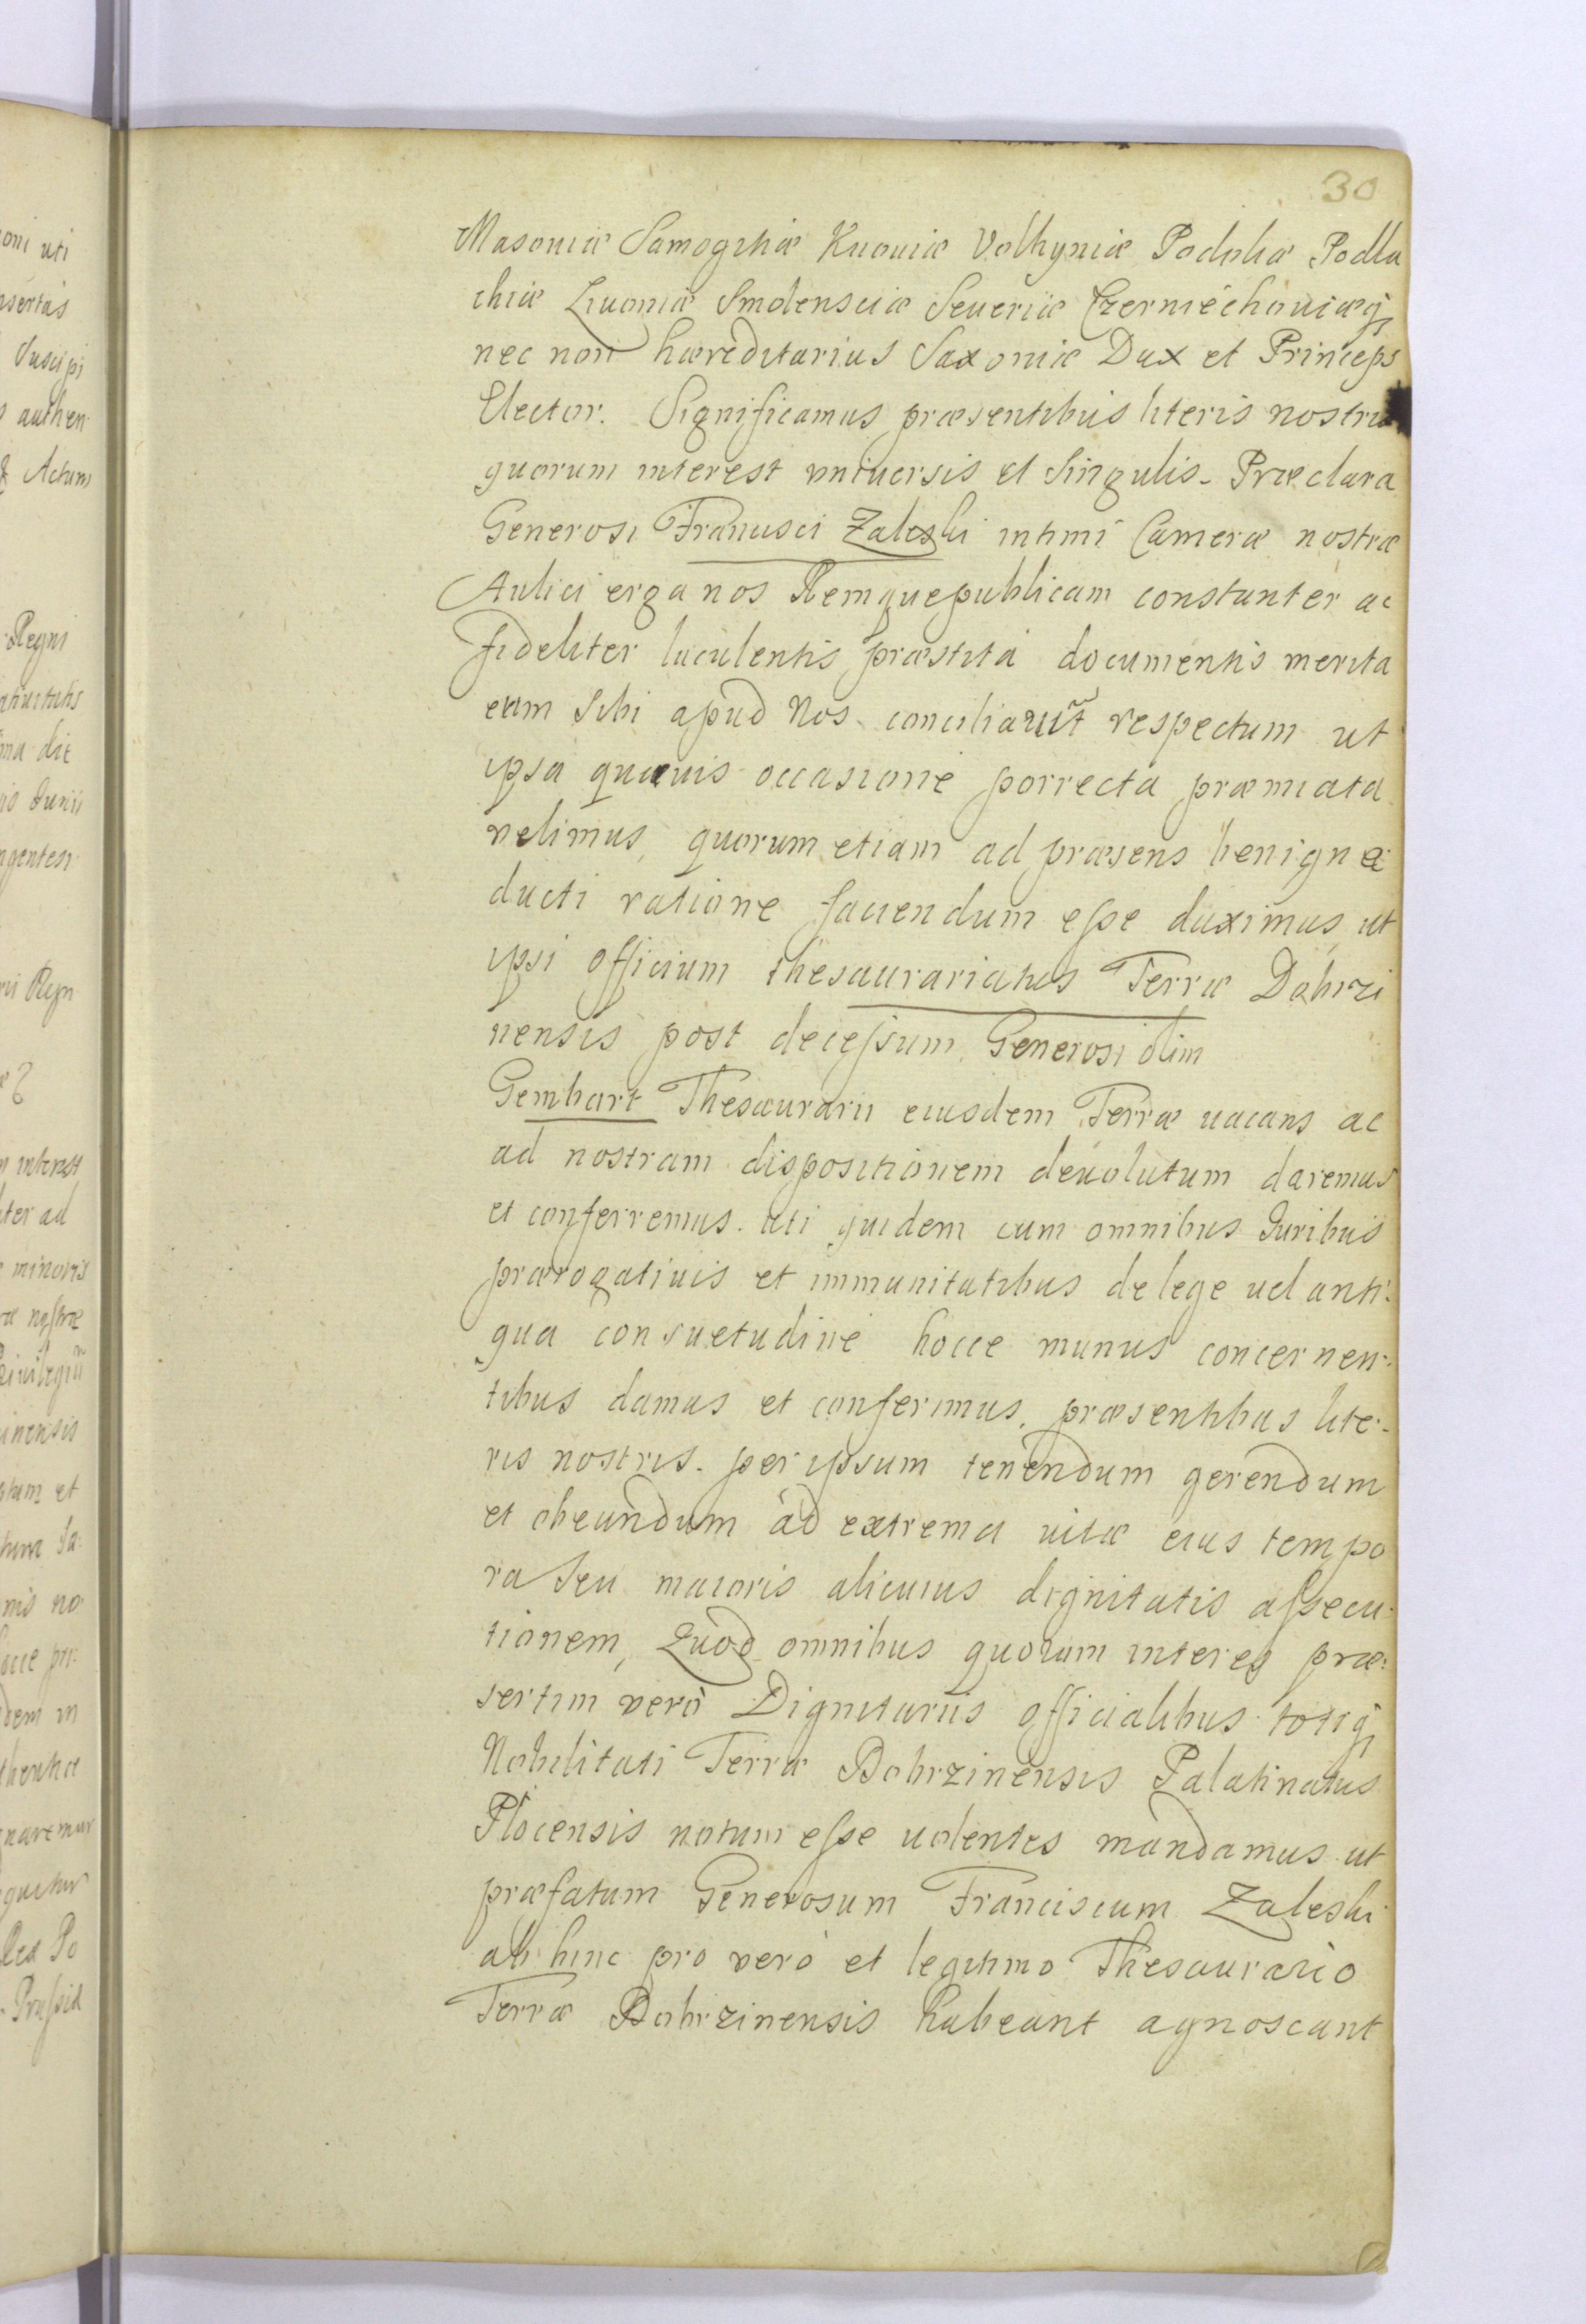 30
Masoniæ Samogitiæ Kuoviæ Volhyniæ Podoliæ Podla
chiæ Livoniæ Smolensciæ Severiæ Czerniechoviæq;
nec non hæreditarius Saxoniæ Dux et Princeps
Elector. Significamus præsentibus literis nostris
quorum interest universis et Singulis. Præclara
Generosi Francisci Zaleski intimi Cameræ nostræ
Aulici erga nos Remquepublicam constanter ac
fideliter luculentis præstita documentis merita
eum Sibi apud Nos conciliarũt respectum ut
ipsa quævis occasione porrecta præmiata
velimus, quorum etiam ad præsens benigna
ducti ratione faciendum eſse duximus, ut
ipsi officium thesaurariatus Terræ Dobrzi
nensis post deceſsum Generosi olim
Gembart Thesaurarii eiusdem Terræ uacans ac
ad nostram dispositionem deuolutum daremus
et conferremus. uti quidem cum omnibus Juribus
prærogatiuis et immunitatibus de lege uel anti:
qua consuetudine hocce munus concernen:
tibus damus et conferimus. præsentibus lite:
ris nostris. per ipsum tenendum gerendum
et obeundum ad extrema uitæ eius tempo
ra Seu maioris alicuius dignitatis aſsecu:
tionem, Quod omnibus quorum interes præ:
sertim verò Dignitariis officialibus totiq;
Nobilitati Terræ Dobrzinensis Palatinatus
Plocensis notum eſse uolentes mandamus ut
præfatum Generosum Franciscum Zaleski
ab hinc pro verò et legitimo Thesaurario
Terræ Dobrzinensis habeant agnoscant